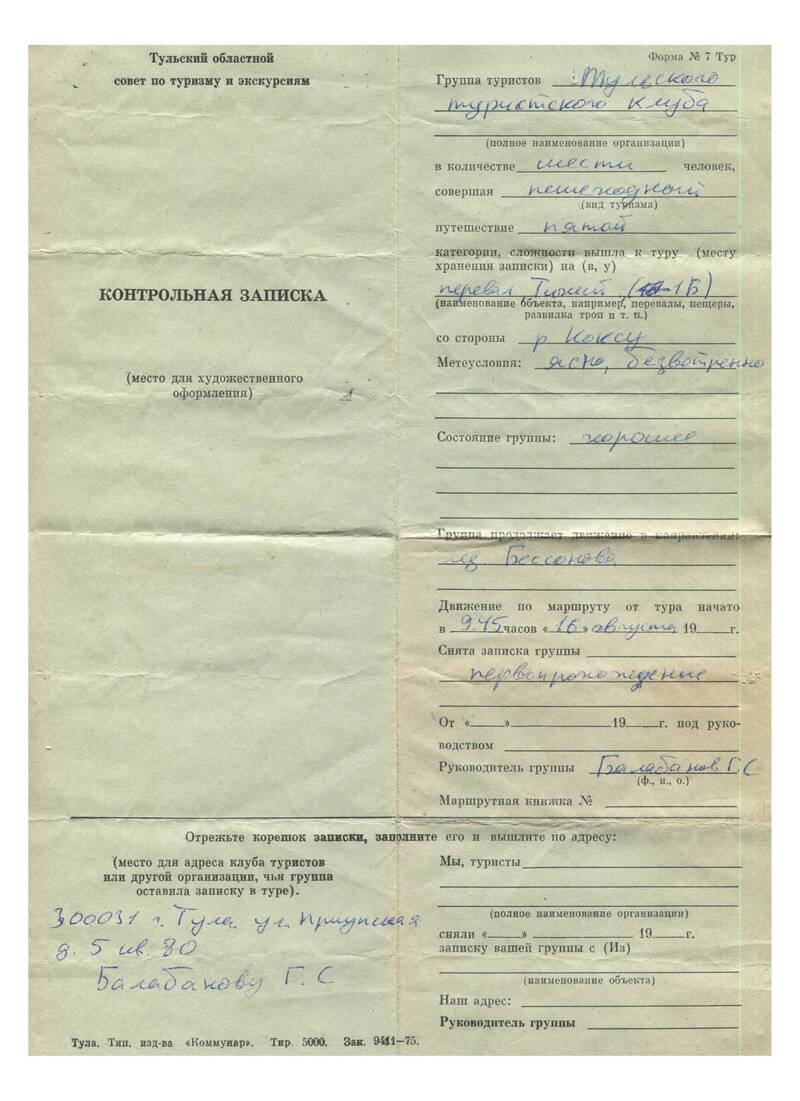 Тульский областной
совет по туризму и экскурсиям
КОНТРОЛЬНАЯ ЗАПИСКА
(место для художественного
оформления)
Форма № 7 Тур
Группа туристов Тульского
туристского клуба
(полное наименование организации)
в количестве шести человек,
совершая пешеходный
(вид туризма)
путешествие пятой
категории, сложности вышла к туру (месту
хранения записки) на (в, у)
перевал (1Б)
(наименование объекта, например, перевалы, пещеры,
развилка троп и т. п.)
со стороны р Коксу
Метеусловия: ясно, безветренно
Состояние группы: хорошее
Группа продолжает движение в направлении:
лд. Бессонова
Движение по маршруту от тура начато
в 9.45 часов «16» августа 19 г.
Снята записка группы
первопрохождение
От « » 19 г. под руко-
водством
Руководитель группы Балабанов Г.С
(ф., и., о.)
Маршрутная книжка №
Отрежьте корешок записки, заполните его и вышлите по адресу:
(место для адреса клуба туристов
или другой организации, чья группа
оставила записку в туре).
300031 г. Тула ул. Приупская
д. 5 кв. 80
Балабанову Г. С
Мы, туристы
(полное наименование организации)
сняли « » 19 г.
записку вашей группы с (Из)
(наименование объекта)
Наш адрес:
Руководитель группы
Тула. Тип. изд-ва «Коммунар». Тир. 5000. Зак. 9411—75.